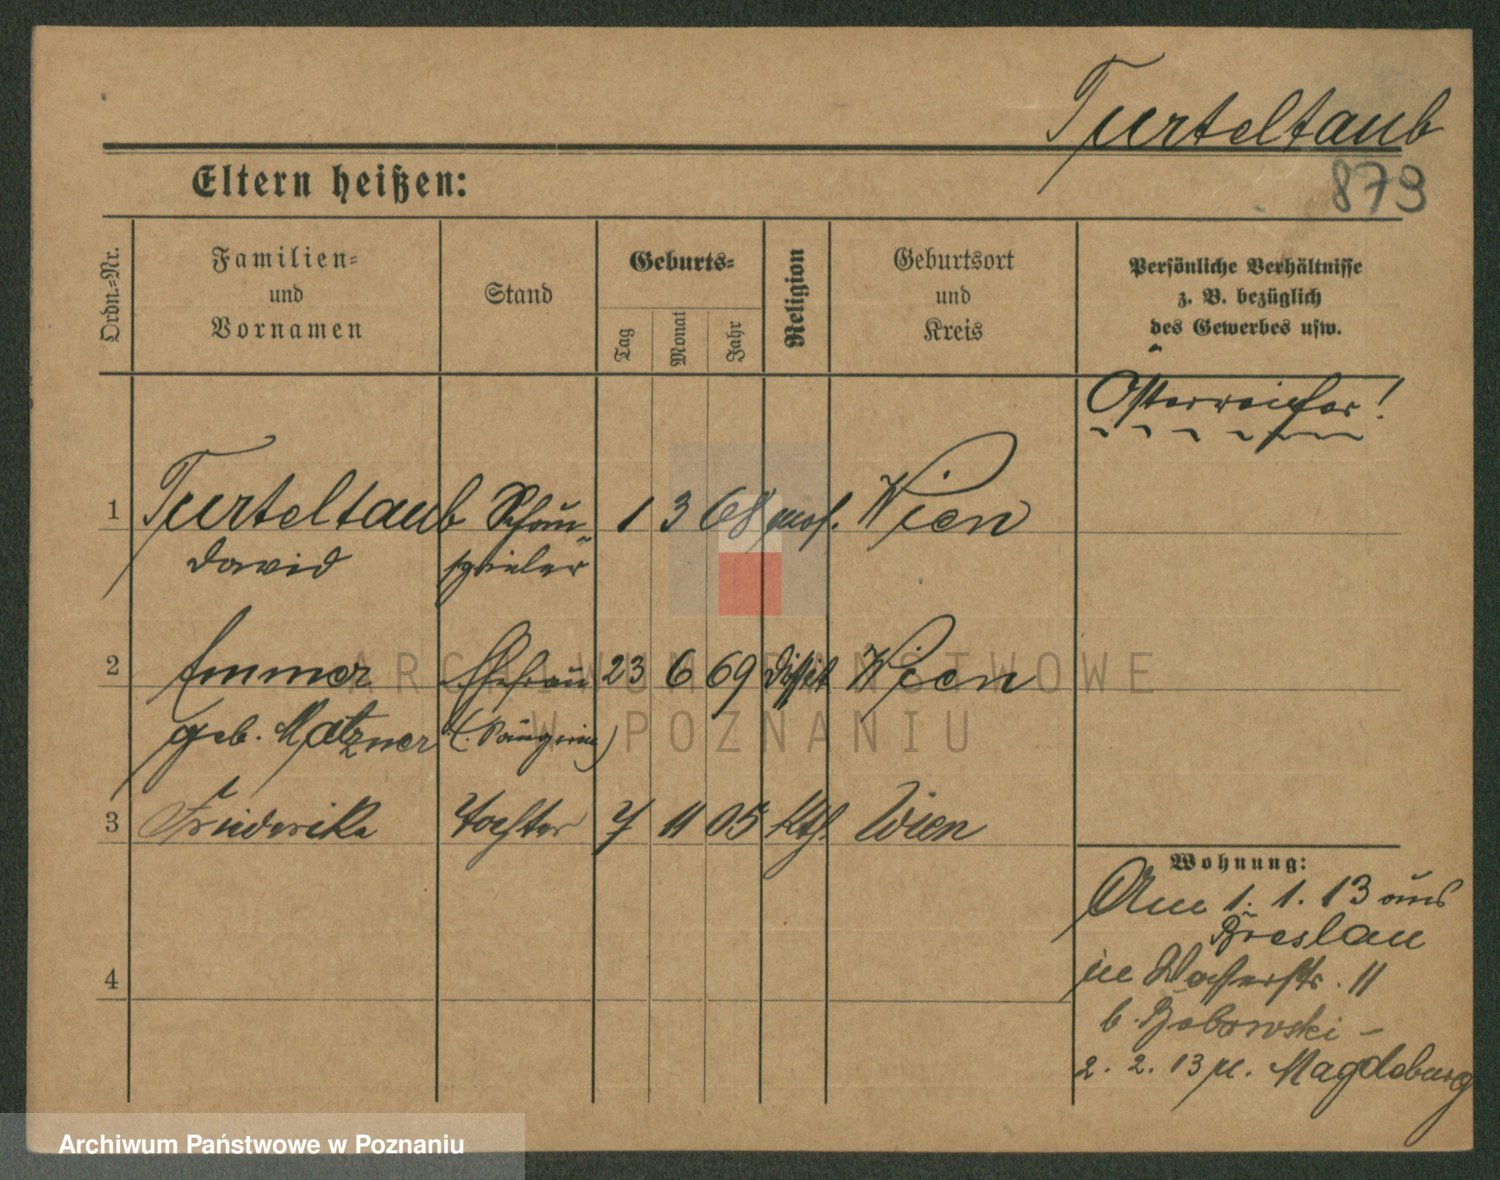 Turteltaub
879
Eltern heißen:
Ordn.-Nr.
Familien-
und
Vornamen
Stand
Geburts-
Tag
Monat
Jahr
Religion
Geburtsort
und
Kreis
Persönliche Verhältnisse
z. B. bezüglich
des Gewerbes usw.
Österreicher!
1 Turteltaub Schau- 1 3 68 mos. Wien
David spieler
2 Ehefrau 23 6 69 Dissid. Wien
geb. Matzner (Sängerin)
3 Friederike Tochter 7 11 05 Kth. Wien
4
Wohnung:
Am 1. 1. 13 aus
Breslau
in Wasserstr. 11
b. Bobowski -
2. 2. 13 n. Magdeburg
ARCHIWUM PAŃSTWOWE
W POZNANIU
Archiwum Państwowe w Poznaniu